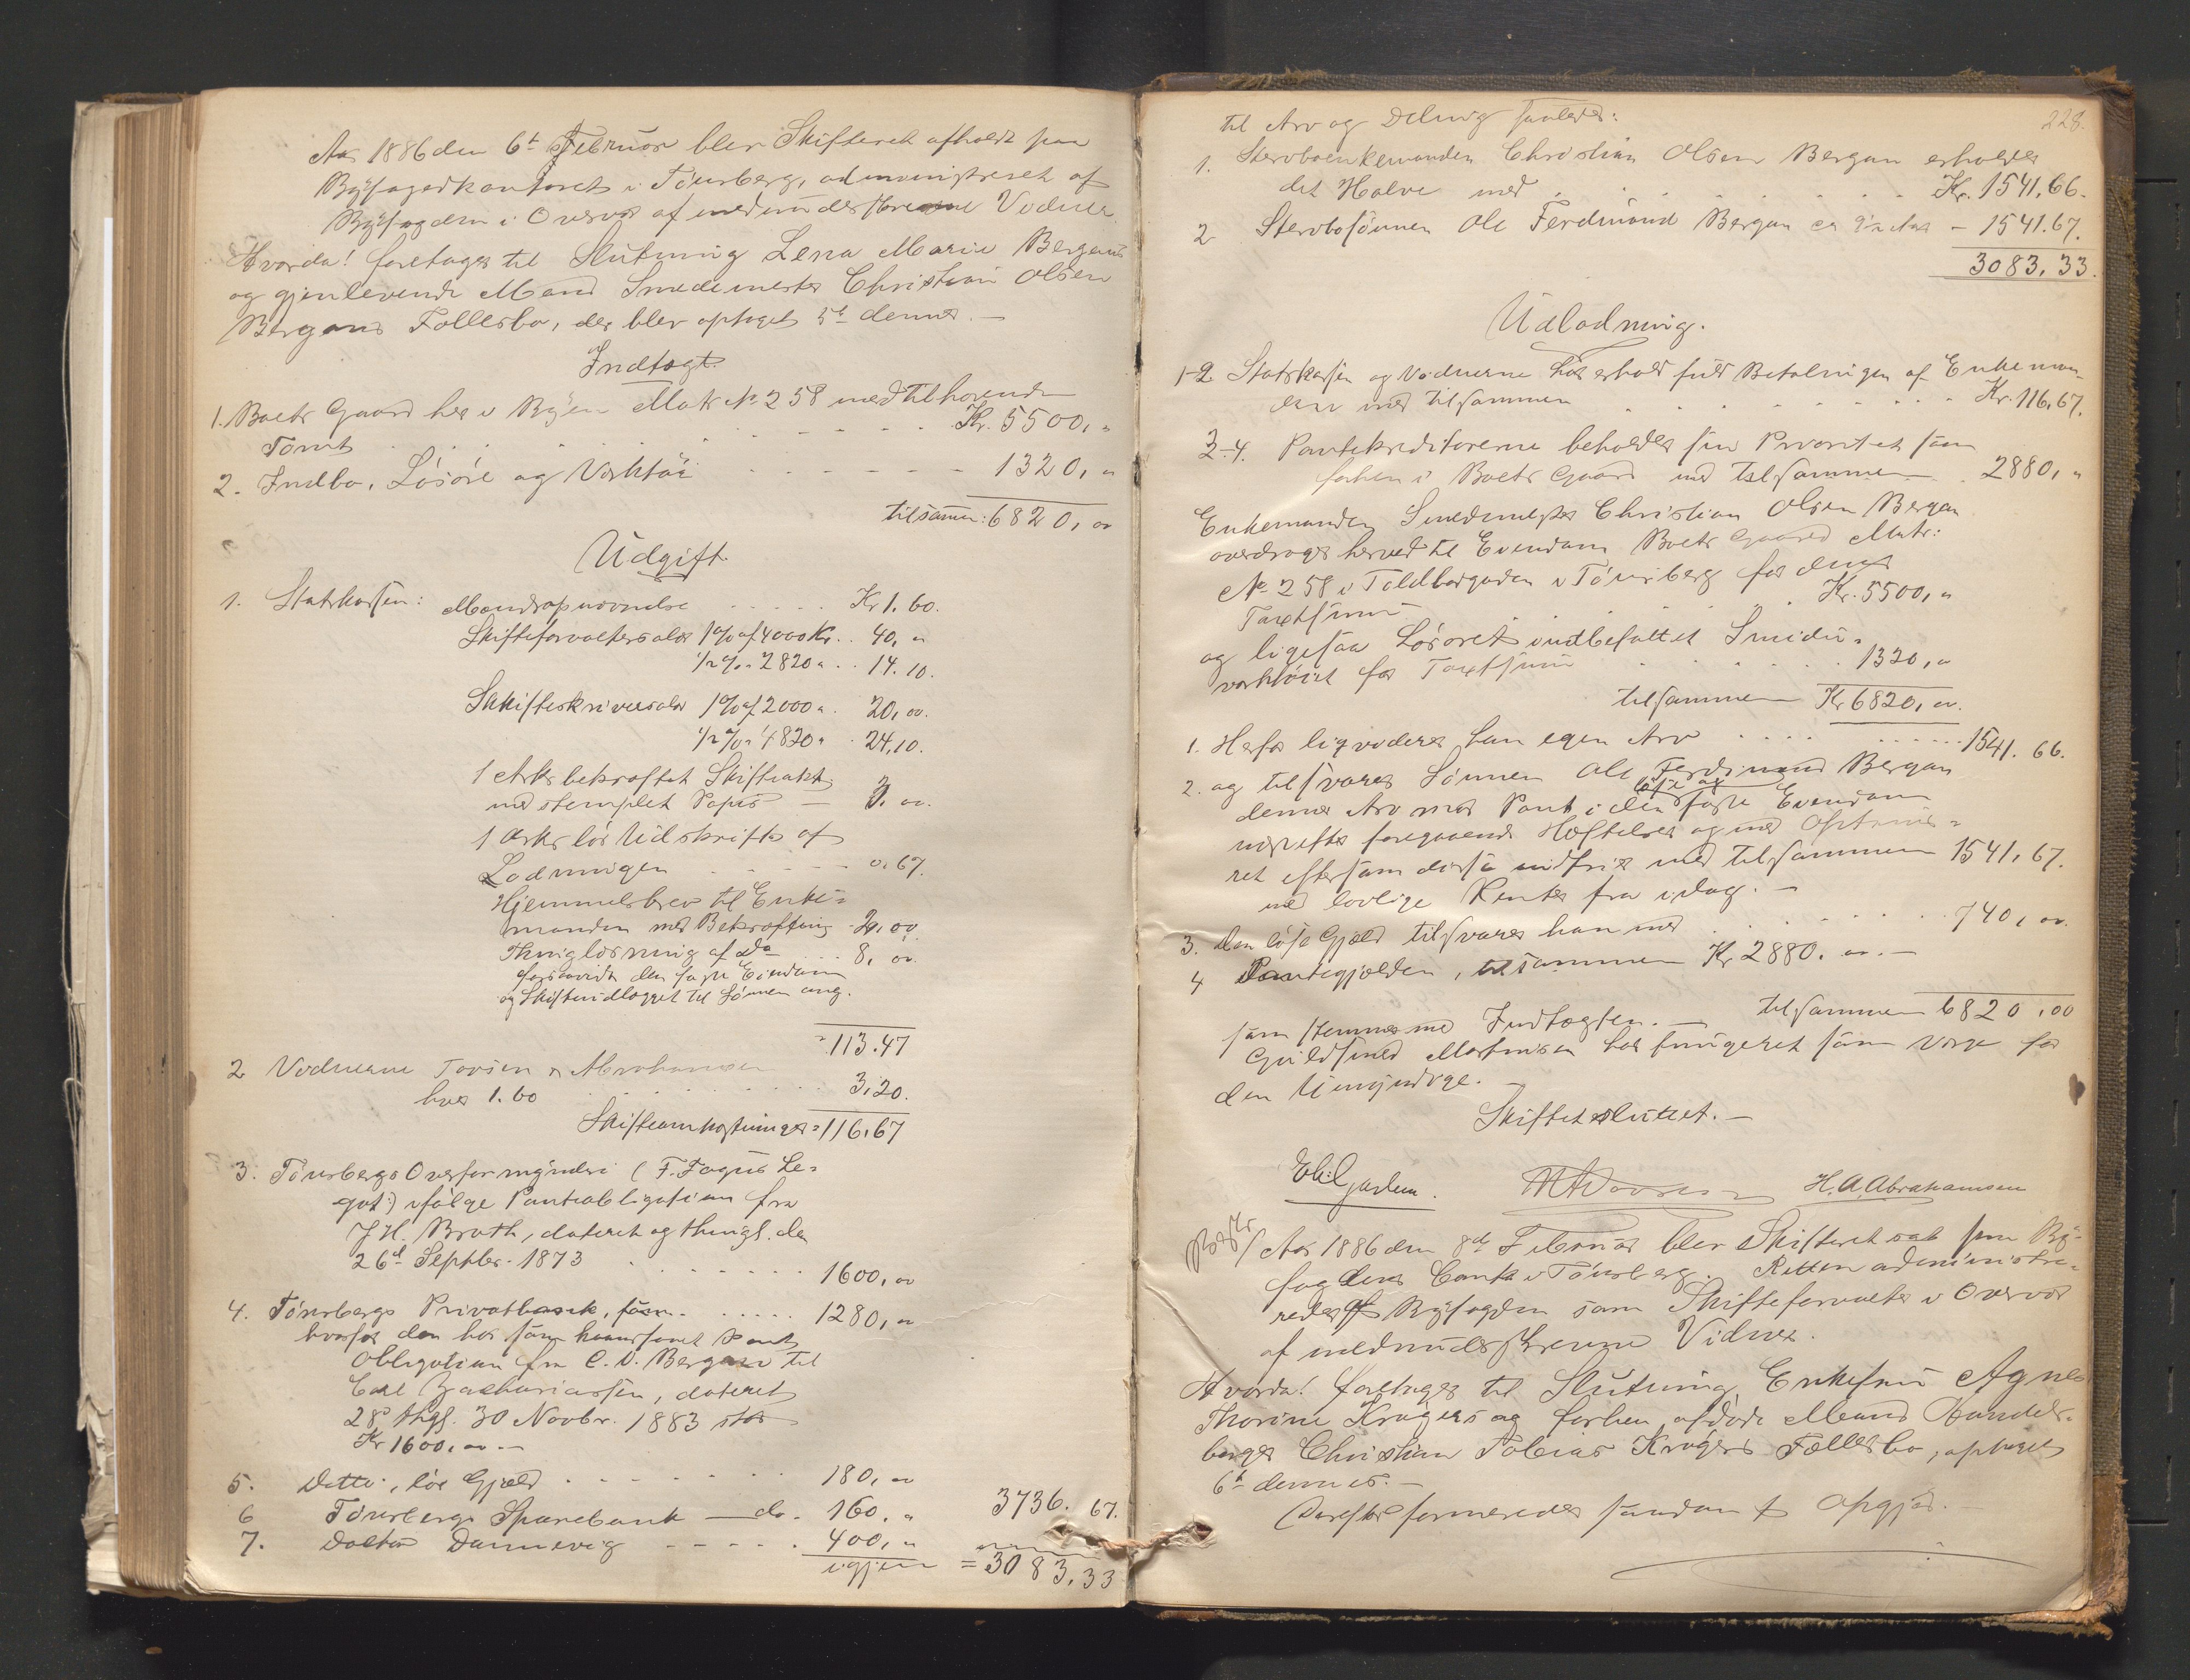 Aar 1886 den 6te Februar blev Skifteret afholdt paa
Byfogedkontoret i Tönsberg, administreret af
Byfogden i Overvær af medunderskrevne Vidner.
Hvorda! foretages til Slutning Lena Marie Bergans
og gjenlevende Mand Smedemester Christian Olsen
Bergans Fællesbo, der blev optaget 5te dennes. —
Indtægt.
1. Boets Gaard her i Byen Matr No 258 med tilhörende
Tomt . . . . . Kr. 5500, "
2. Indbo, Lösöre og Værktöi - - - - - 1320, "
tilsamen: 6820, 00
Udgift.
1. Statskassen: Mandsopnævnelse . . . . . Kr 1.60.
Skifteforvaltersalær 1% af 4000 Kr. . 40, "
1/2 % " 2820 " . . 14.10.
Skifteskriversalær 1% af 2000 " . 20, 00.
1/2 % " 4820 " . 24.10.
1 Arks bekræftet Skifteakt
med stemplet Papir — 3. 00.
1 Arks lös Udskrift af
Lodningen . . . . . 0.67.
Hjemmelsbrev til Enke=
manden med Bekræftning - 2, 00
Thinglæsning af do . . . 8, 00.
forsaavidt den faste Eiendom
og Skifteudlægget til Sönnen ang.
113.47
2 Vidnerne Tovsen & Abrahamsen
hver 1.60 . . . . . 3.20.
Skifteomkostninger = 116.67
3. Tönsbergs Overformynderi (F. Fogns Le=
gat:) ifölge Panteobligation fra
J. H. Broth, dateret og thingl. den
26d Septber. 1873 . . . . . 1600, 00
4. Tönsbergs Privatbank, . . . . . 1280, 00
hvorfor den har som haandfaaet Pant
Obligation fra C. O. Bergan til
Carl Zachariassen, dateret
28d thgl. 30 Novbr. 1883 stor
Kr 1600, 00 —
5. Ditto, lös Gjæld . . . . . 180, 00
6 Tönsbergs Sparebank — do - 160. " 3736. 67.
7. Doctor Dannevig - - - - - 400, "
igjen = 3083.33
228.
til Arv og Deling saaledes:
1. Stervboenkemanden Christian Olsen Bergan erholder
det Halve med . . . . . Kr. 1541.66.
2 Stervbosönnen Ole Ferdinand Bergan ca 9 1/2 Aar - 1541.67.
3083.33.
Udlodning.
1-2 Statskassen og Vidnerne har erholdt fuld Betalingen af Enkeman-
den med tilsammen . . . . . Kr. 116.67.
3-4. Pantekreditorerne beholder sin Prioritet som
forhen i Boets Gaard med tilsammen . . 2880, "
Enkemanden Smedemester Christian Olsen Bergan
overdrages herved til Eiendom Boets Gaard Matr:
No 258 i Toldbodgaden i Tönsberg for dens
Taxtsum . . . . . Kr. 5500, "
og ligesaa Lösöret indbefattet Smedie=
værktöiet for Taxtsum . . . . . 1320, "
tilsammen Kr 6820, 00.
1. Herfor liqviderer han egen Arv . . . . . 1541. 66.
2. og tilsvarer Sönnen Ole Ferdinand Bergan
dennes Arv mod Pant i den löse og faste Eiendom
næstefter foregaaende Hæftelser og med Optræ=
ret eftersom disse indfries med tilsammen 1541.67.
med lovlige Renter fra idag. —
3. Den löse Gjæld tilsvarer han med . . . . . 740, 00.
4 Pantegjælden, tilsammen Kr 2880. 00. —
tilsammen 6820.00
som stemmer med Indtægten. —
Guldsmed Mortensen har fungeret som Værge for
den Umyndige. —
Skiftet sluttet. —
H. A. Abrahamsen
Aar 1886 den 8de Februar blev Skifteret sat paa By-
fogdens Contor i Tönsberg. Retten administre-
redes af Byfogden som Skifteforvalter i Overvær
af medunderskrevne Vidner.
Hvorda! foretages til Slutning Enkefru Agnes
Thorine Krögers og forhen afdöde Mand Handels-
borger Christian Tobias Krögers Fællesbo, optaget
6te dennes. —
Derefter formeredes saadant Opgjör. —